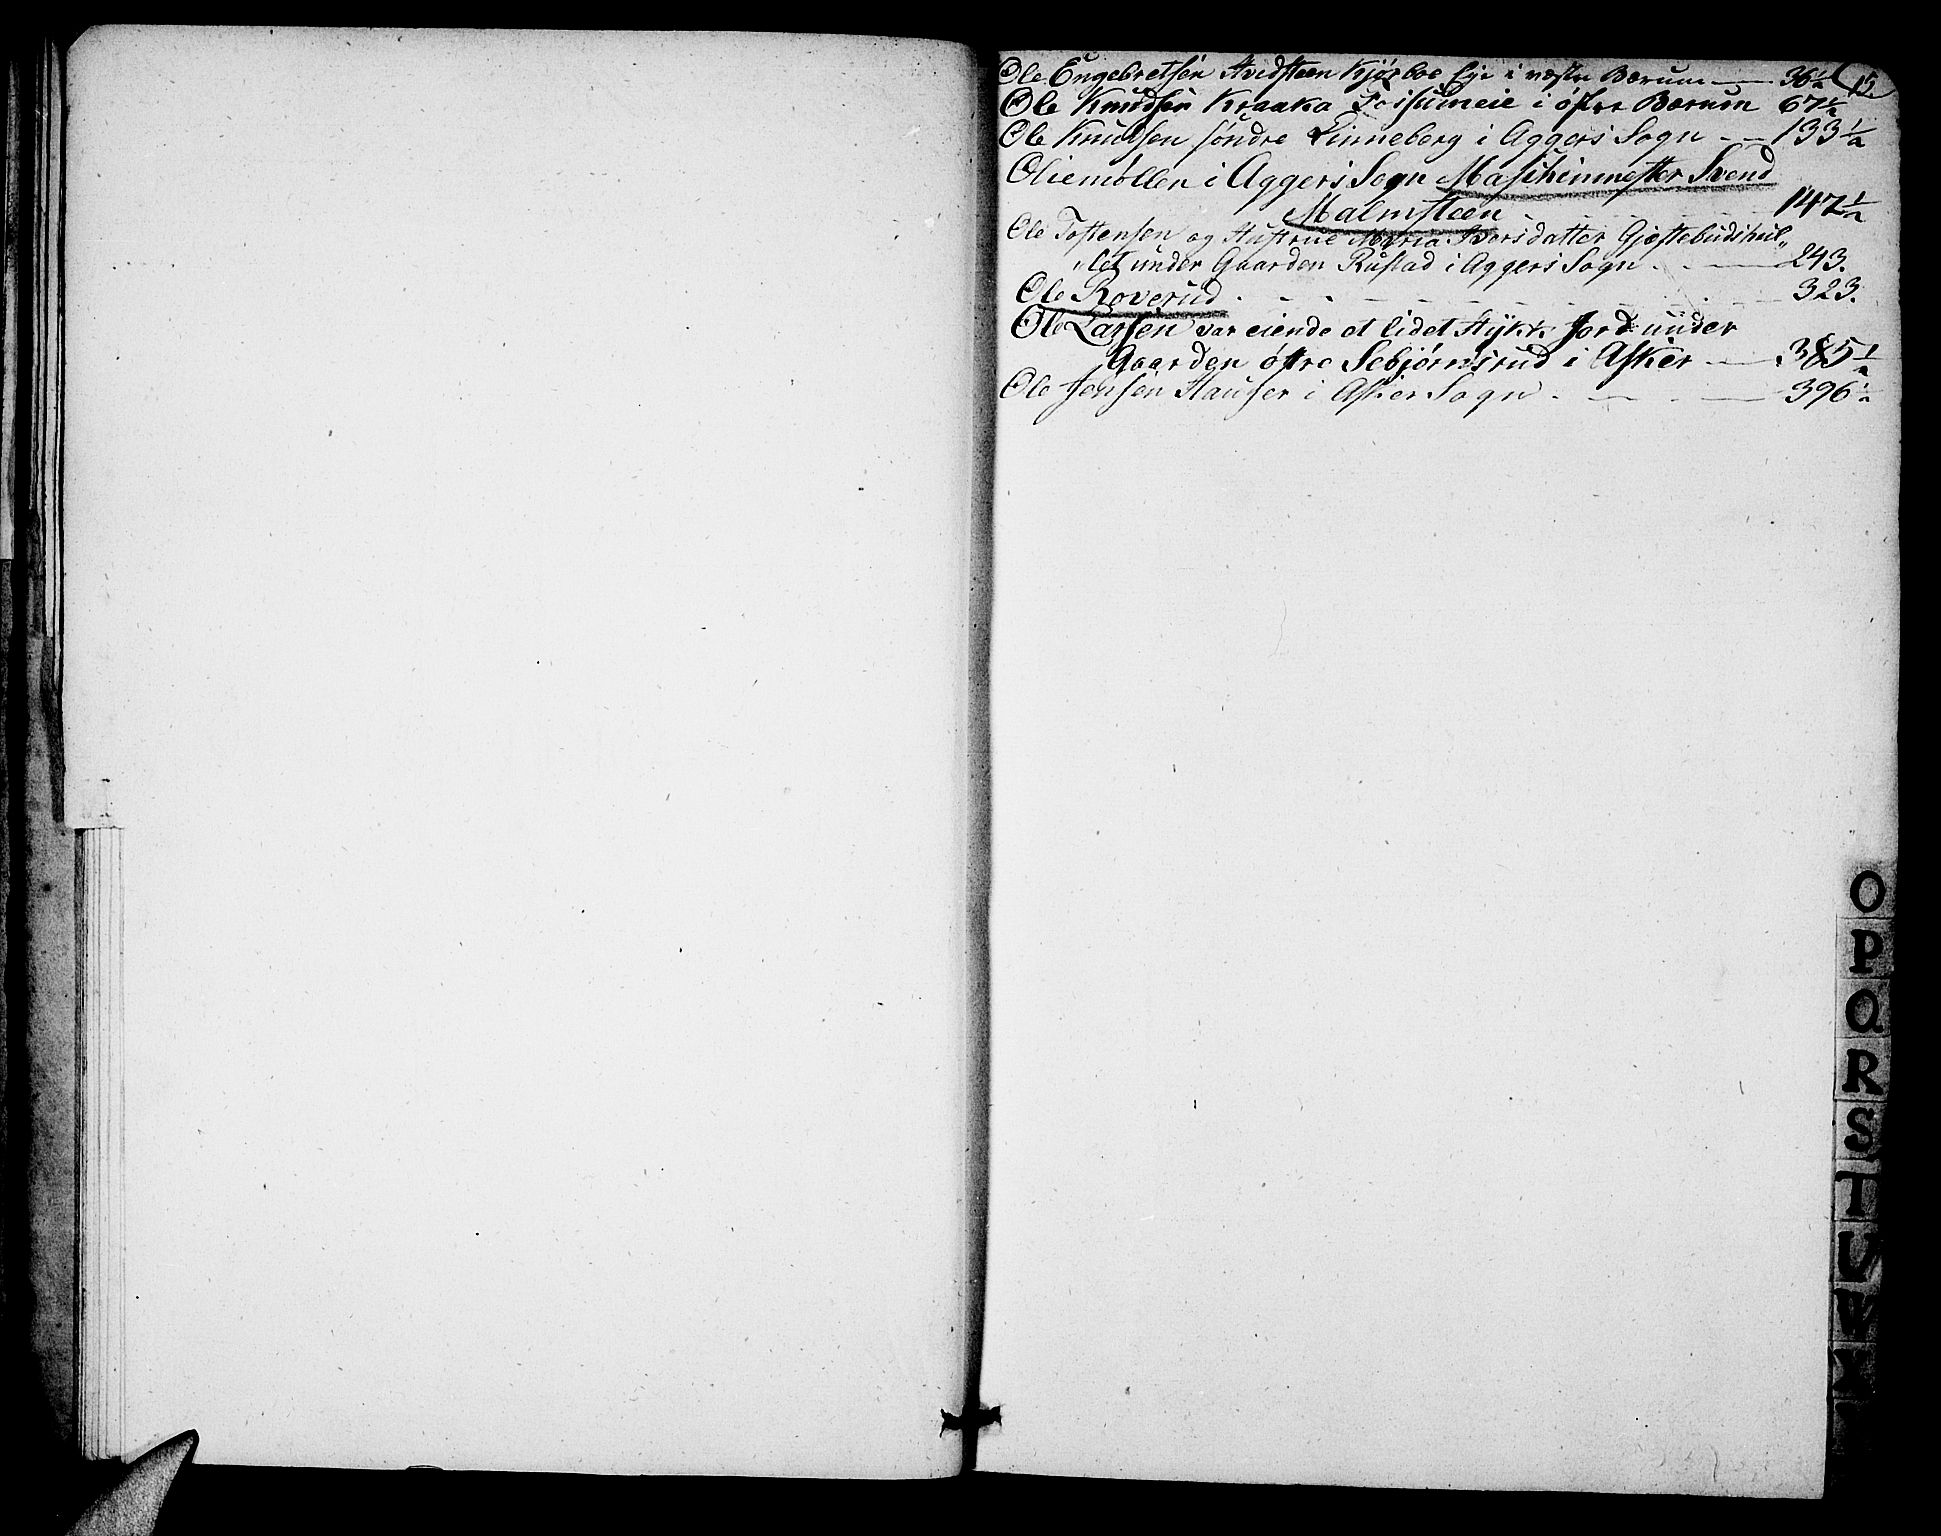 15.
Ole Engebretsen Hvidsteen Kjørboe Eje i vestre Bærum — 36½
Ole Knudsen Kraaka Fossumeie i øfre Bærum 67½
Ole Knudsen søndre Linneberg i Aggers Sogn — 133½
Oliemøllen i Aggers Sogn Maschinmester Svend
Malmsteen 147½
Ole Tostensen og Hustrue Maria Iversdatter Gjæstebudshul„
„let under Gaarden Rustad i Aggers Sogn — 243.
Ole Roverud 323.
Ole Larsen var eiende et lidet Stykk Jord under
Gaarden øfre Sebjørnsrud i Asker — 385½
Ole Jensen Hauser i Asker Sogn — 396½
O
P
Q
R
S
T
U